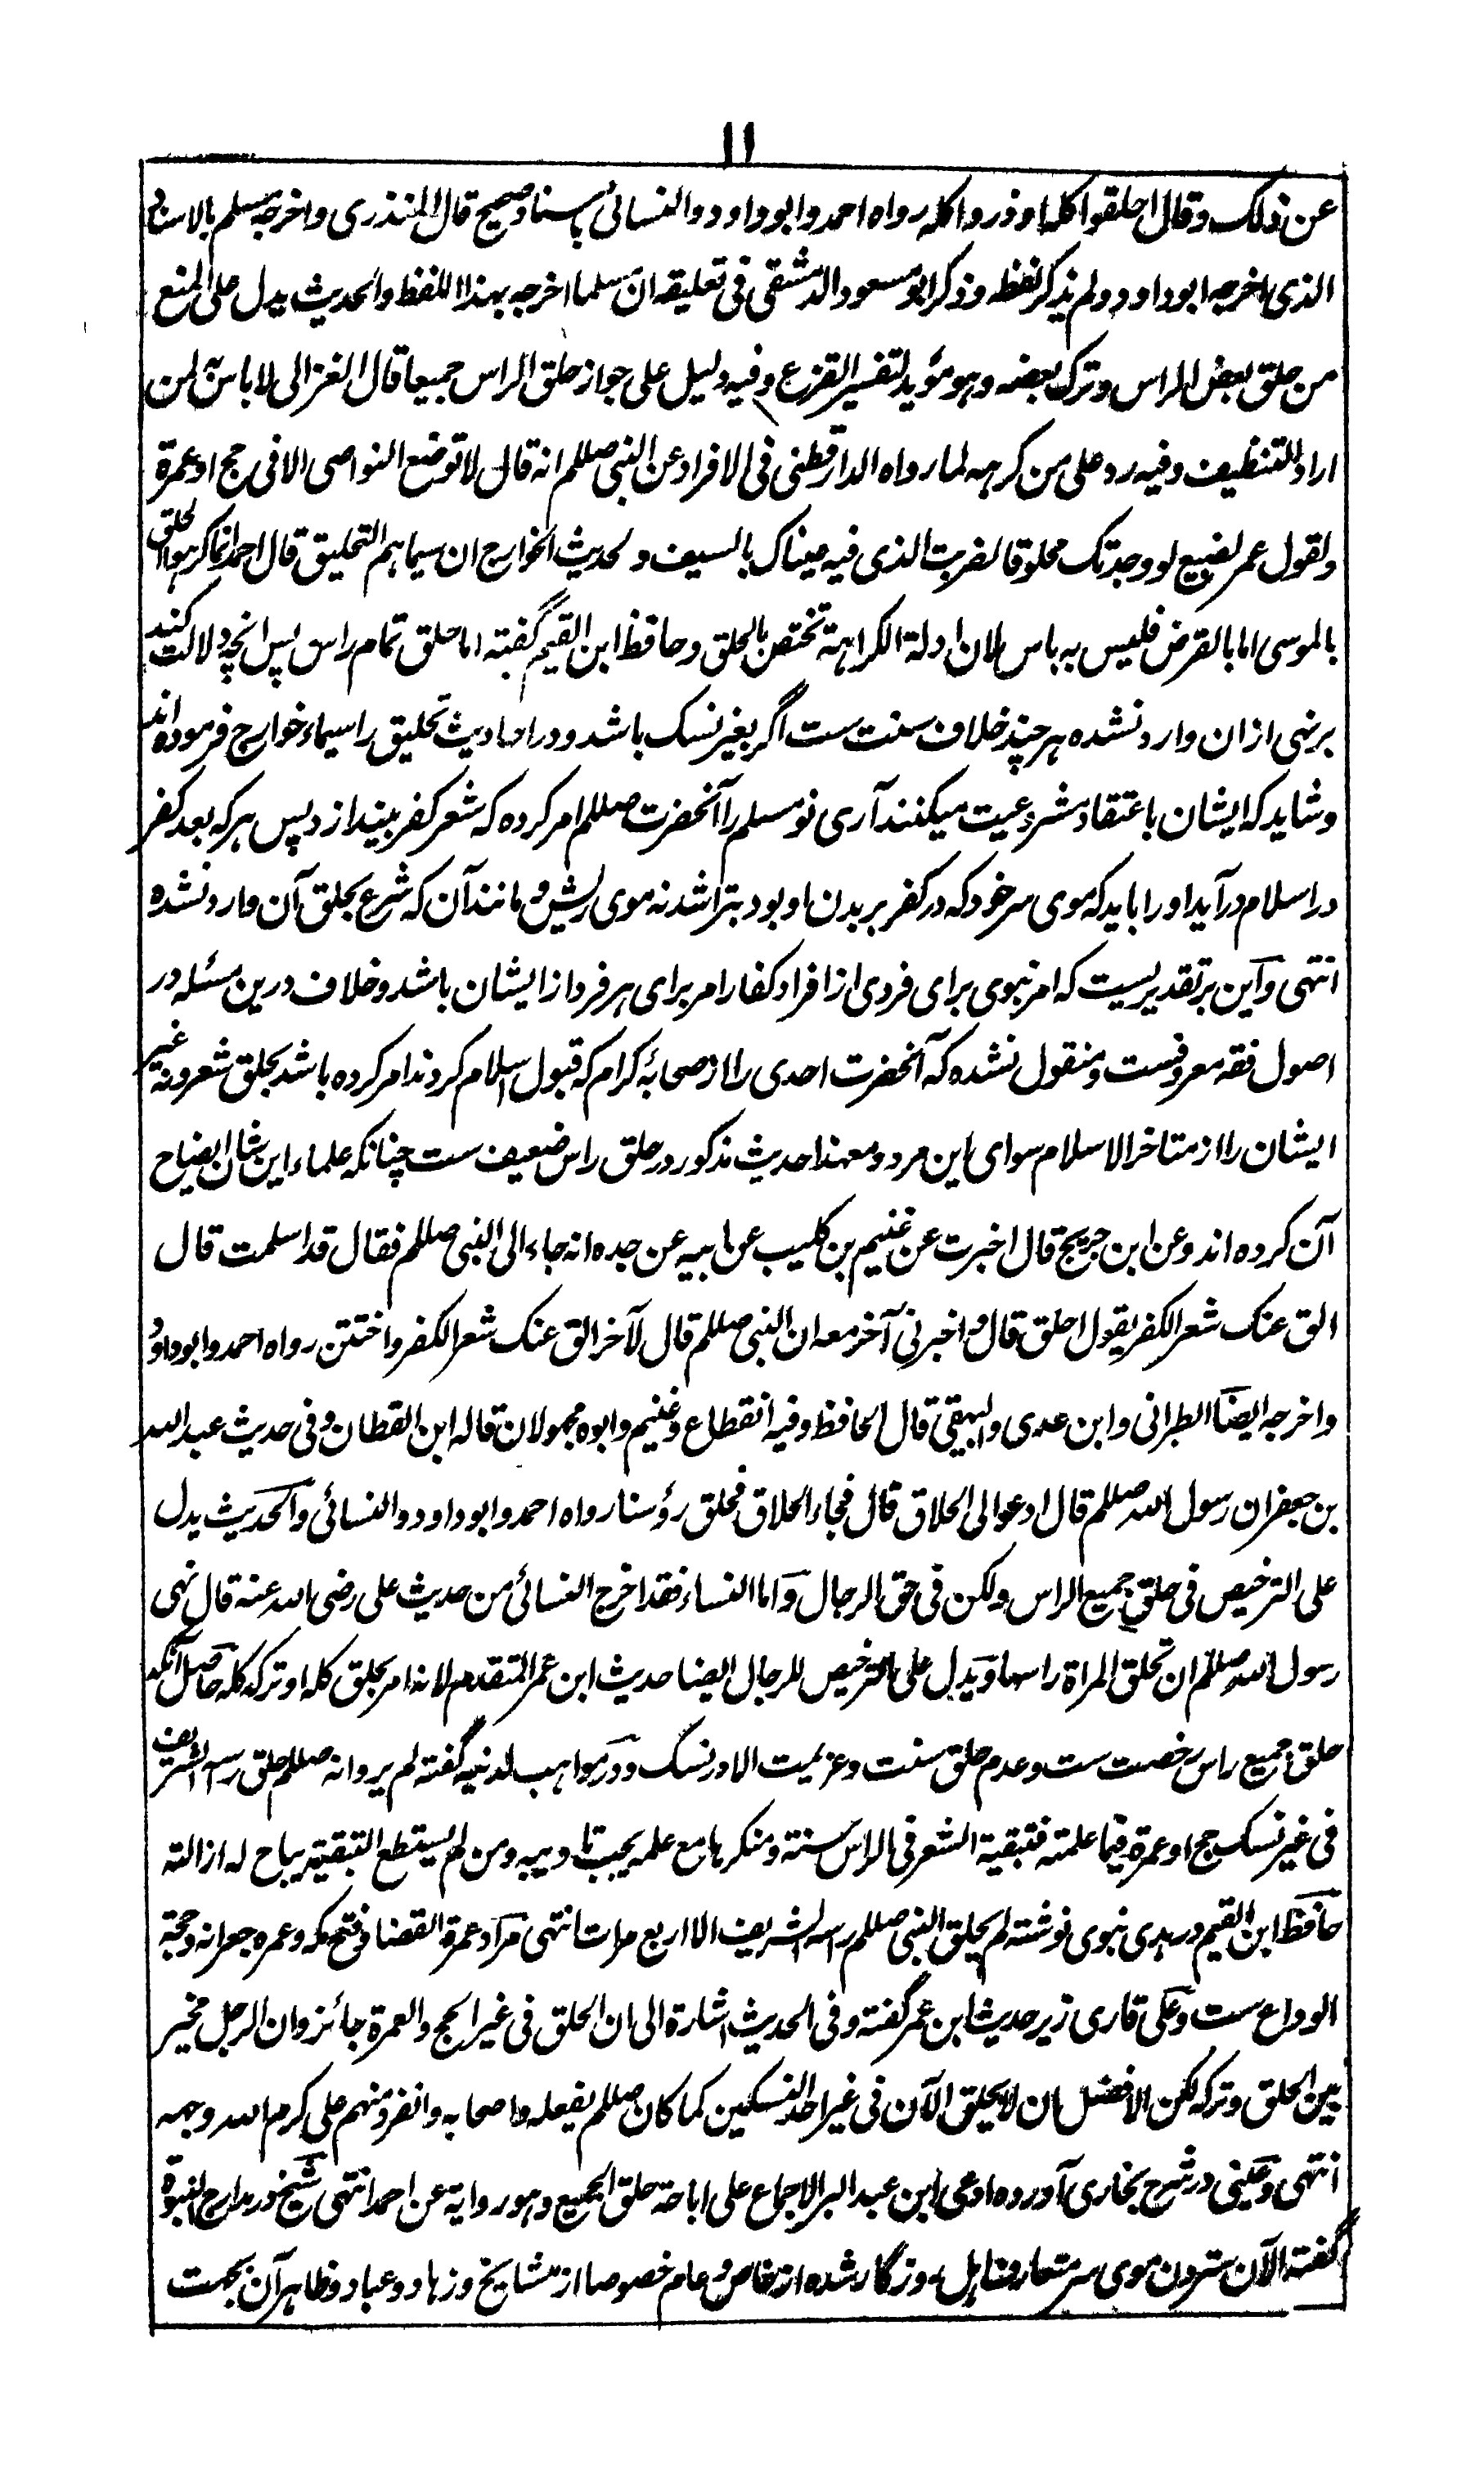 ۱۱
عن ذلک وقال احلقوا کله او ذروا کله رواه احمد وابو داود والنسائی باسناد صحیح قال المنذری واخرجه مسلم بالاسناد
الذی اخرجه ابو داود ولم یذکر لفظه وذکر ابو مسعود الدمشقی فی تعلیقه ان مسلما اخرجه بهذا اللفظ والحدیث یدل علی المنع
من حلق بعض الراس وترک بعضه وهو مؤید لتفسیر القزع وفیه دلیل علی جواز حلق الراس جمیعا قال الغزالی لا باس به لمن
اراد التنظیف وفیه رد علی من کرهه لما رواه الدارقطنی فی الافراد عن النبی صللم انه قال لا توضع النواصی الا فی حج او عمرة
ولقول عمر لضبیع لو وجدتک محلوقا لضربت الذی فیه عیناک بالسیف ولحدیث الخوارج ان سیماهم التحلیق قال احمد انما کرهوا الحلق
بالموسی اما بالقرض فلیس به باس لان ادلة الکراهة تختص بالحلق وحافظ ابن القیم گفته اما حلق تمام راس پس انچه دلالت کند
بر نهی ازان وارد نشده هر چند خلاف سنت ست اگر بغیر نسک باشد و در احادیث تحلیق را سیماء خوارج فرموده اند
و شاید که ایشان باعتقاد مشروعیت میکنند آری نو مسلم را آنحضرت صللم امر کرده که شعر کفر بیندازد پس هر که بعد کفر
در اسلام درآید او را باید که موی سر خود که در کفر بر بدن او بود بتراشد نه موی ریش و مانند آن که شرع بحلق آن وارد نشده
انتهی و این بر تقدیریست که امر نبوی برای فردی از افراد کفار امر برای هر فرد از ایشان باشد و خلاف درین مسئله در
اصول فقه معروفست و منقول نشده که آنحضرت احدی را از صحابهٔ کرام که قبول اسلام کردند امر کرده باشد بحلق شعر و نه غیر
ایشان را از متاخر الاسلام سوای این مرد و معهذا حدیث مذکور در حلق راس ضعیف ست چنانکه علماء این شان ایضاح
آن کرده اند وعن ابن جریج قال اخبرت عن غنیم بن کلیب عن ابیه عن جده انه جاء الی النبی صللم فقال قد اسلمت قال
الق عنک شعر الکفر یقول احلق قال واخبرنی آخر معه ان النبی صللم قال لآخر الق عنک شعر الکفر واختتن رواه احمد وابو داود
واخرجه ایضا الطبرانی وابن عدی والبیهقی قال الحافظ وفیه انقطاع وغنیم وابوه مجهولان قاله ابن القطان وفی حدیث عبد الله
بن جعفر ان رسول الله صللم قال ادعوا لی الحلاق قال فجاء الحلاق فحلق رؤسنا رواه احمد وابو داود والنسائی والحدیث یدل
علی الترخیص فی حلق جمیع الراس ولکن فی حق الرجال واما النساء فقد اخرج النسائی من حدیث علی رضی الله عنه قال نهی
رسول الله صللم ان تحلق المراة راسها ویدل علی الترخیص للرجال ایضا حدیث ابن عمر المتقدم لانه امر بحلق کله او ترکه کله حاصل آنکه
حلق جمیع راس رخصت ست و عدم حلق سنت و عزیمت الا در نسک و در مواهب لدنیه گفته لم یرو انه صللم حلق راسه الشریف
فی غیر نسک حج او عمرة فیما علمته فتبقیة الشعر فی الراس سنة ومنکرها مع علمه یجب تادیبه ومن لم یستطع التبقیة یباح له ازالته
حافظ ابن القیم در هدی نبوی نوشته لم یحلق النبی صللم راسه الشریف الا اربع مرات انتهی مراد عمرة القضا و فتح مکه و عمره جعرانه و حجة
الوداع ست و علی قاری زیر حدیث ابن عمر گفته وفی الحدیث اشارة الی ان الحلق فی غیر الحج والعمرة جائز وان الرجل مخیر
بین الحلق وترکه لکن الافضل ان لا یحلق الآن فی غیر احد النسکین کما کان صللم یفعله واصحابه وانفرد منهم علی کرم الله وجهه
انتهی و عینی در شرح بخاری آورده ادعی ابن عبد البر الاجماع علی اباحة حلق الجمیع وهو روایة عن احمد انتهی شیخ در مدارج النبوة
گفته الآن ستردن موی سر متعارف اهل روزگار شده از خاص و عام خصوصا از مشایخ و زهاد و عباد و ظاهر آن بجهت